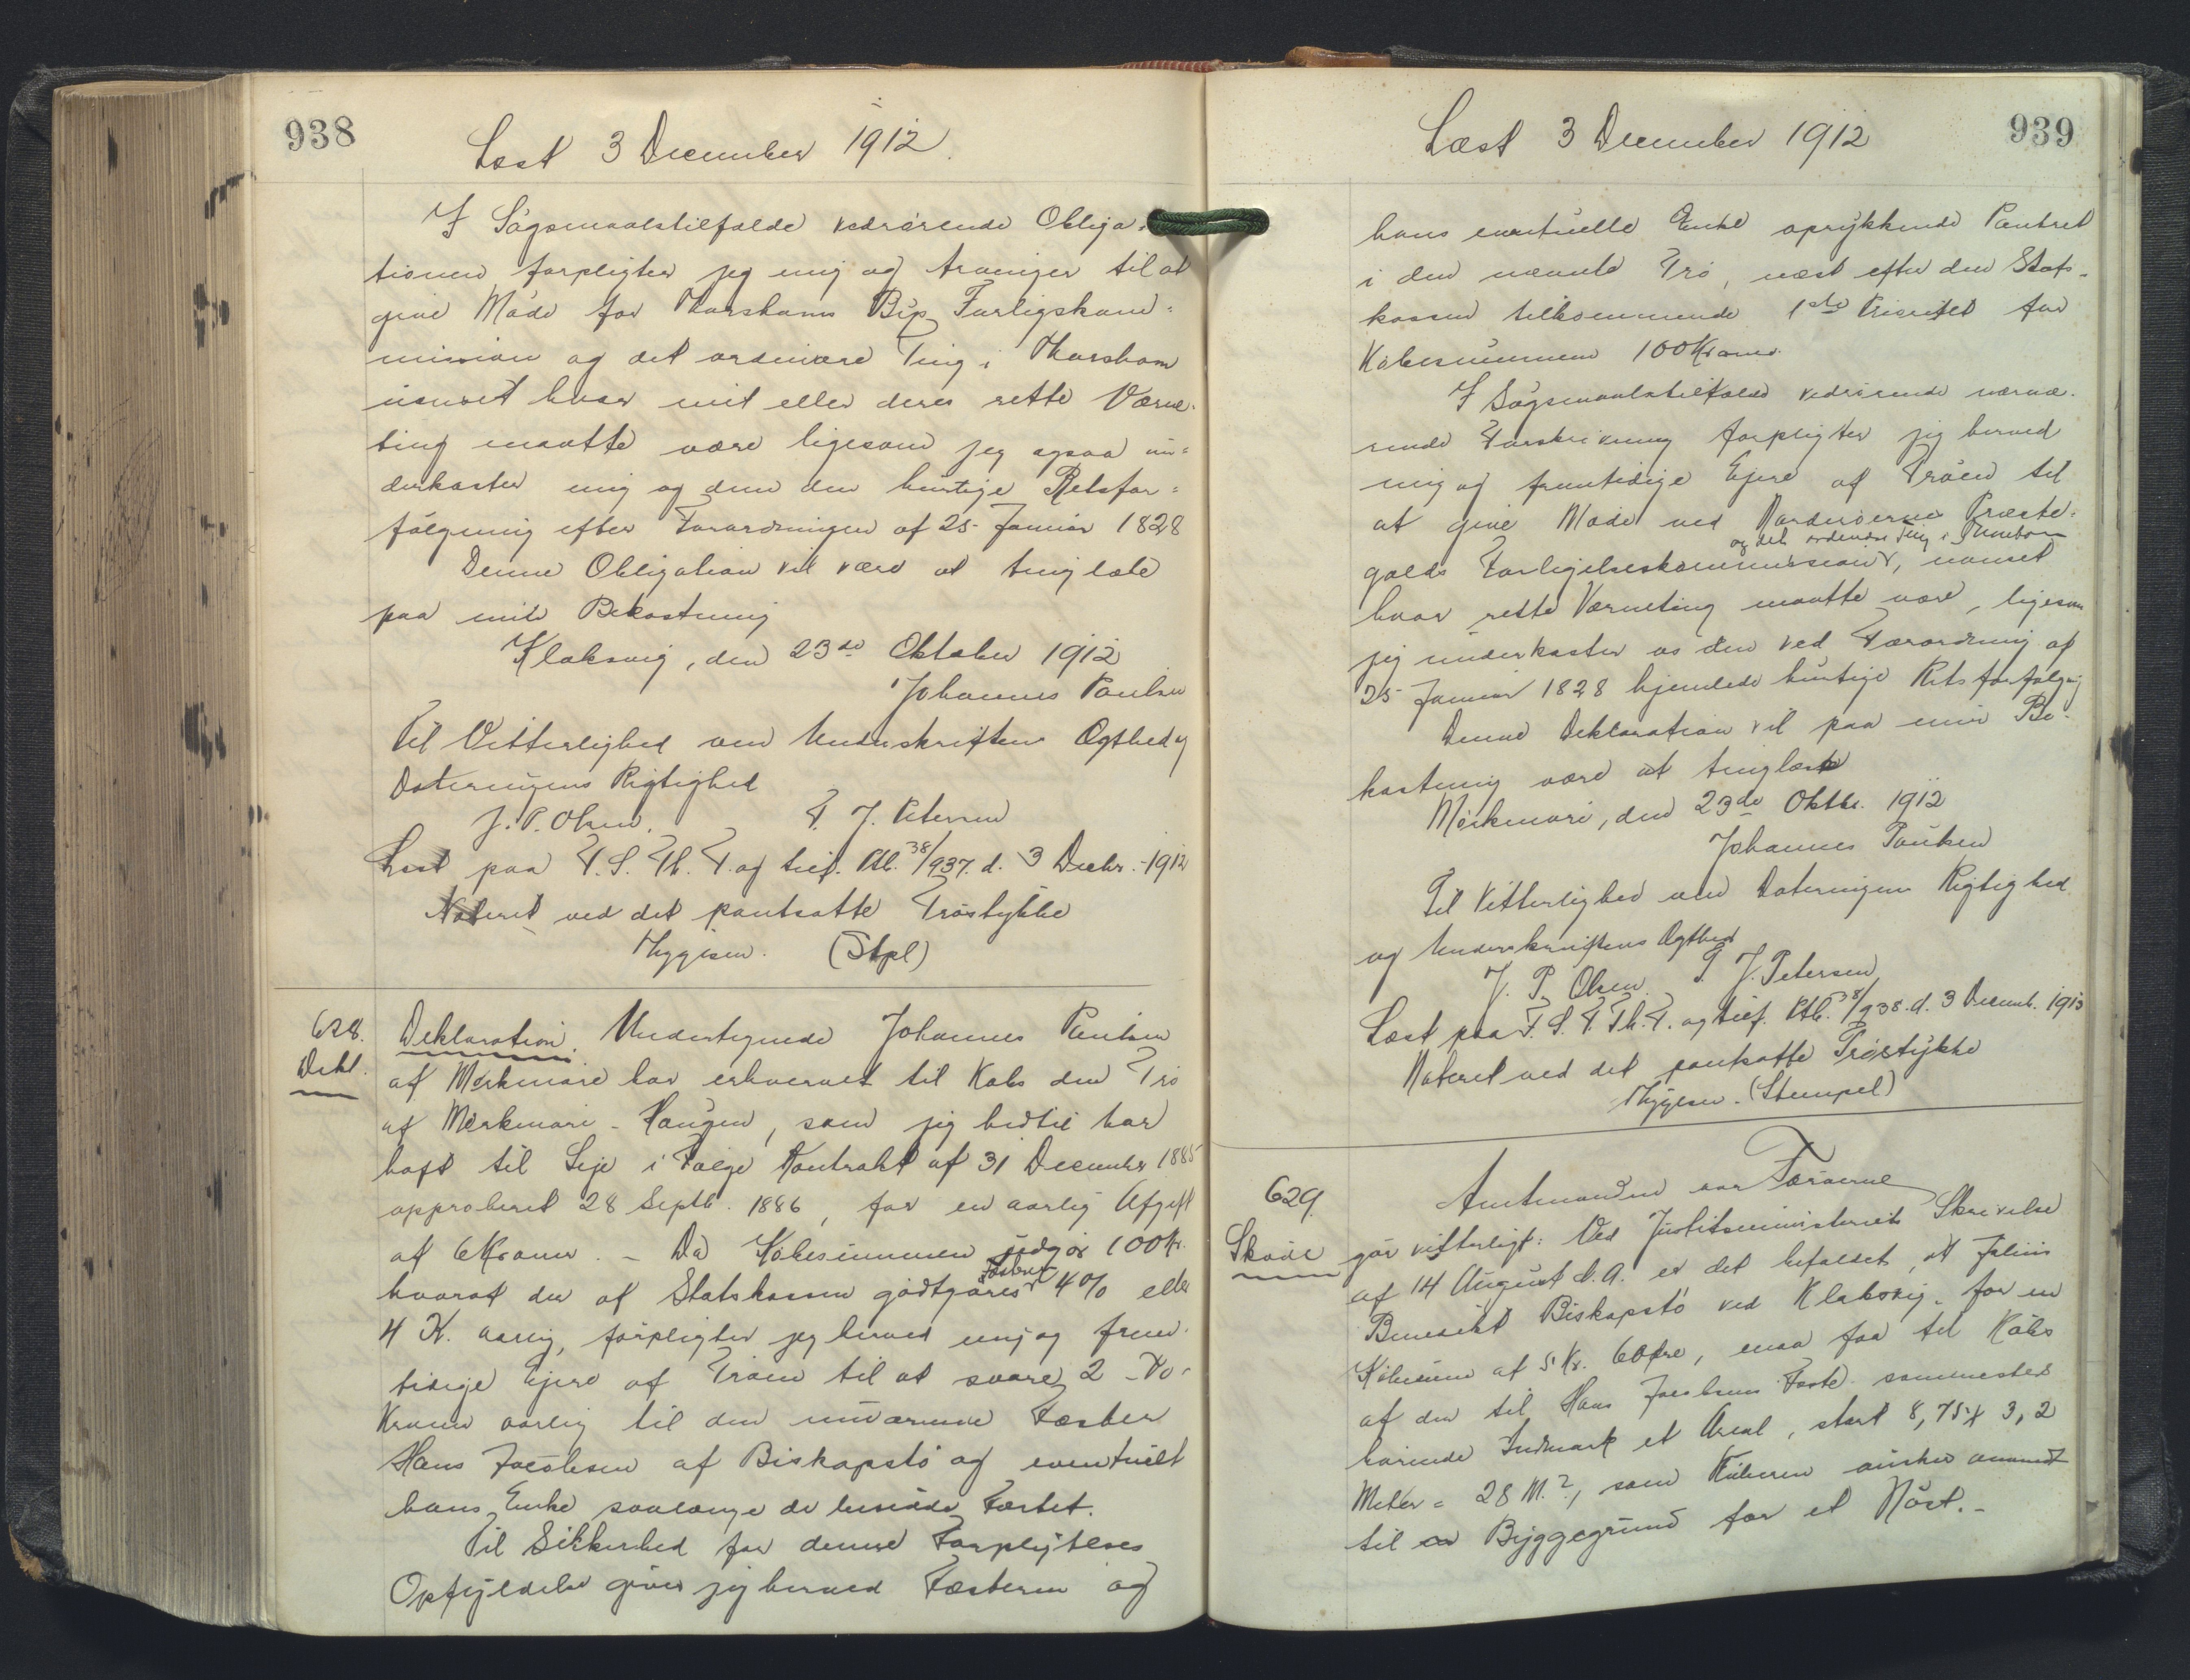 938
Læst 3 December 1912.
I Sögsmaalstilfælde vedrörende Obliga-
tionen forpligter jeg mig og Arvinger til at
give Möde for Thorshavns Byp Forligskom-
mission og det ordinære Ting i Thorshavn
uanset hvor mit eller deres rette Værne-
ting maatte være ligesom jeg ogsaa un-
derkaster mig og dem den hurtige Retsfor-
fölgning efter Forordningen af 25 Januar 1828
Denne Obligation vil være at tinglæse
paa min Bekostning
Klaksvig, den 23de Oktober 1912
Johannes Poulsen
Til Vitterlighed om Underskriftens Ægthed og
Dateringens Rigtighed
J. P. Olsen. P. J. Petersen
Læst paa F. S. Th. T. og tilf. Ptb. 38/937. d. 3 Decbr. 1912
Noteret ved det pantsatte Tröstykke
Thygesen. (Stpl)
628.
Dekl.
Deklaration. Undertegnede Johannes Poulsen
af Mörkenöre har erhvervet til Köbs den Trö
af Mörkenöre - Haugen, som jeg hidtil har
haft til Leje i Fölge Kontrakt af 31 December 1885
approberet 28 Septb. 1886, for en aarlig Afgift
af 6 Kroner. - Da Köbesummen udgör 100 Kr.
hvoraf der af Statskassen godtgöres Fæstet 4% eller
4 K. aarlig, forpligter jeg herved mig og frem-
tidige Ejere af Tröen til at svare 2 - To -
Kroner aarlig til den nuværende Fæster
Hans Jacobsen af Biskopstö og eventuelt
hans Enke saalænge de besidde Fæstet.
Til Sikkerhed for denne Forpligtelses
Opfyldelse giver jeg herved Fæsteren og
Læst 3 December 1912
939
hans eventuelle Enke oprykkende Panteret
i den nævnte Trö, næst efter den Stats-
kassen tilkommende 1ste Prioritet for
Köbesummen 100 Kroner.
I Sögsmaalstilfælde vedrörende nærvæ-
rende Forskrivning forpligter jeg herved
mig og fremtidige Ejere af Tröen til
at give Möde ved Norderöernes Præste-
og det ordinære Ting i Thorshavn
gælds Forligelseskommission, uanset
hvor rette Værneting maatte være, ligesom
jeg underkaster os den ved Forordning af
25 Januar 1828 hjemlede hurtige Retsforfölgning
Denne Deklaration vil paa min Be-
kostning være at tinglæse
Mörkenöre, den 23de Oktbr. 1912
Johannes Poulsen
Til Vitterlighed om Dateringens Rigtighed
og Underskriftens Ægthed
J. P. Olsen. P. J. Petersen
Læst paa F. S. F. Th. T. og tilf. Ptb. 38/938. d. 3 Decemb. 1912
Noteret ved det pantsatte Tröstykke
Thygesen. (Stempel)
629.
Skøde
Amtmanden over Færøerne
gør vitterligt: Ved Justitsministeriets Skrivelse
af 14 August d. A. er det befalet, at Julius
Benedikt Biskopstö ved Klaksvig, for en
Köbesum af 5 Kr. 60 Øre, maa faa til Köbs
af den til Hans Jacobsens Fæste sammesteds
hørende Indmark et Areal, stort 8,75 x 3,2
Meter = 28 M.², som Köberen ønsker anvendt
til en Byggegrund for et Nöst. -